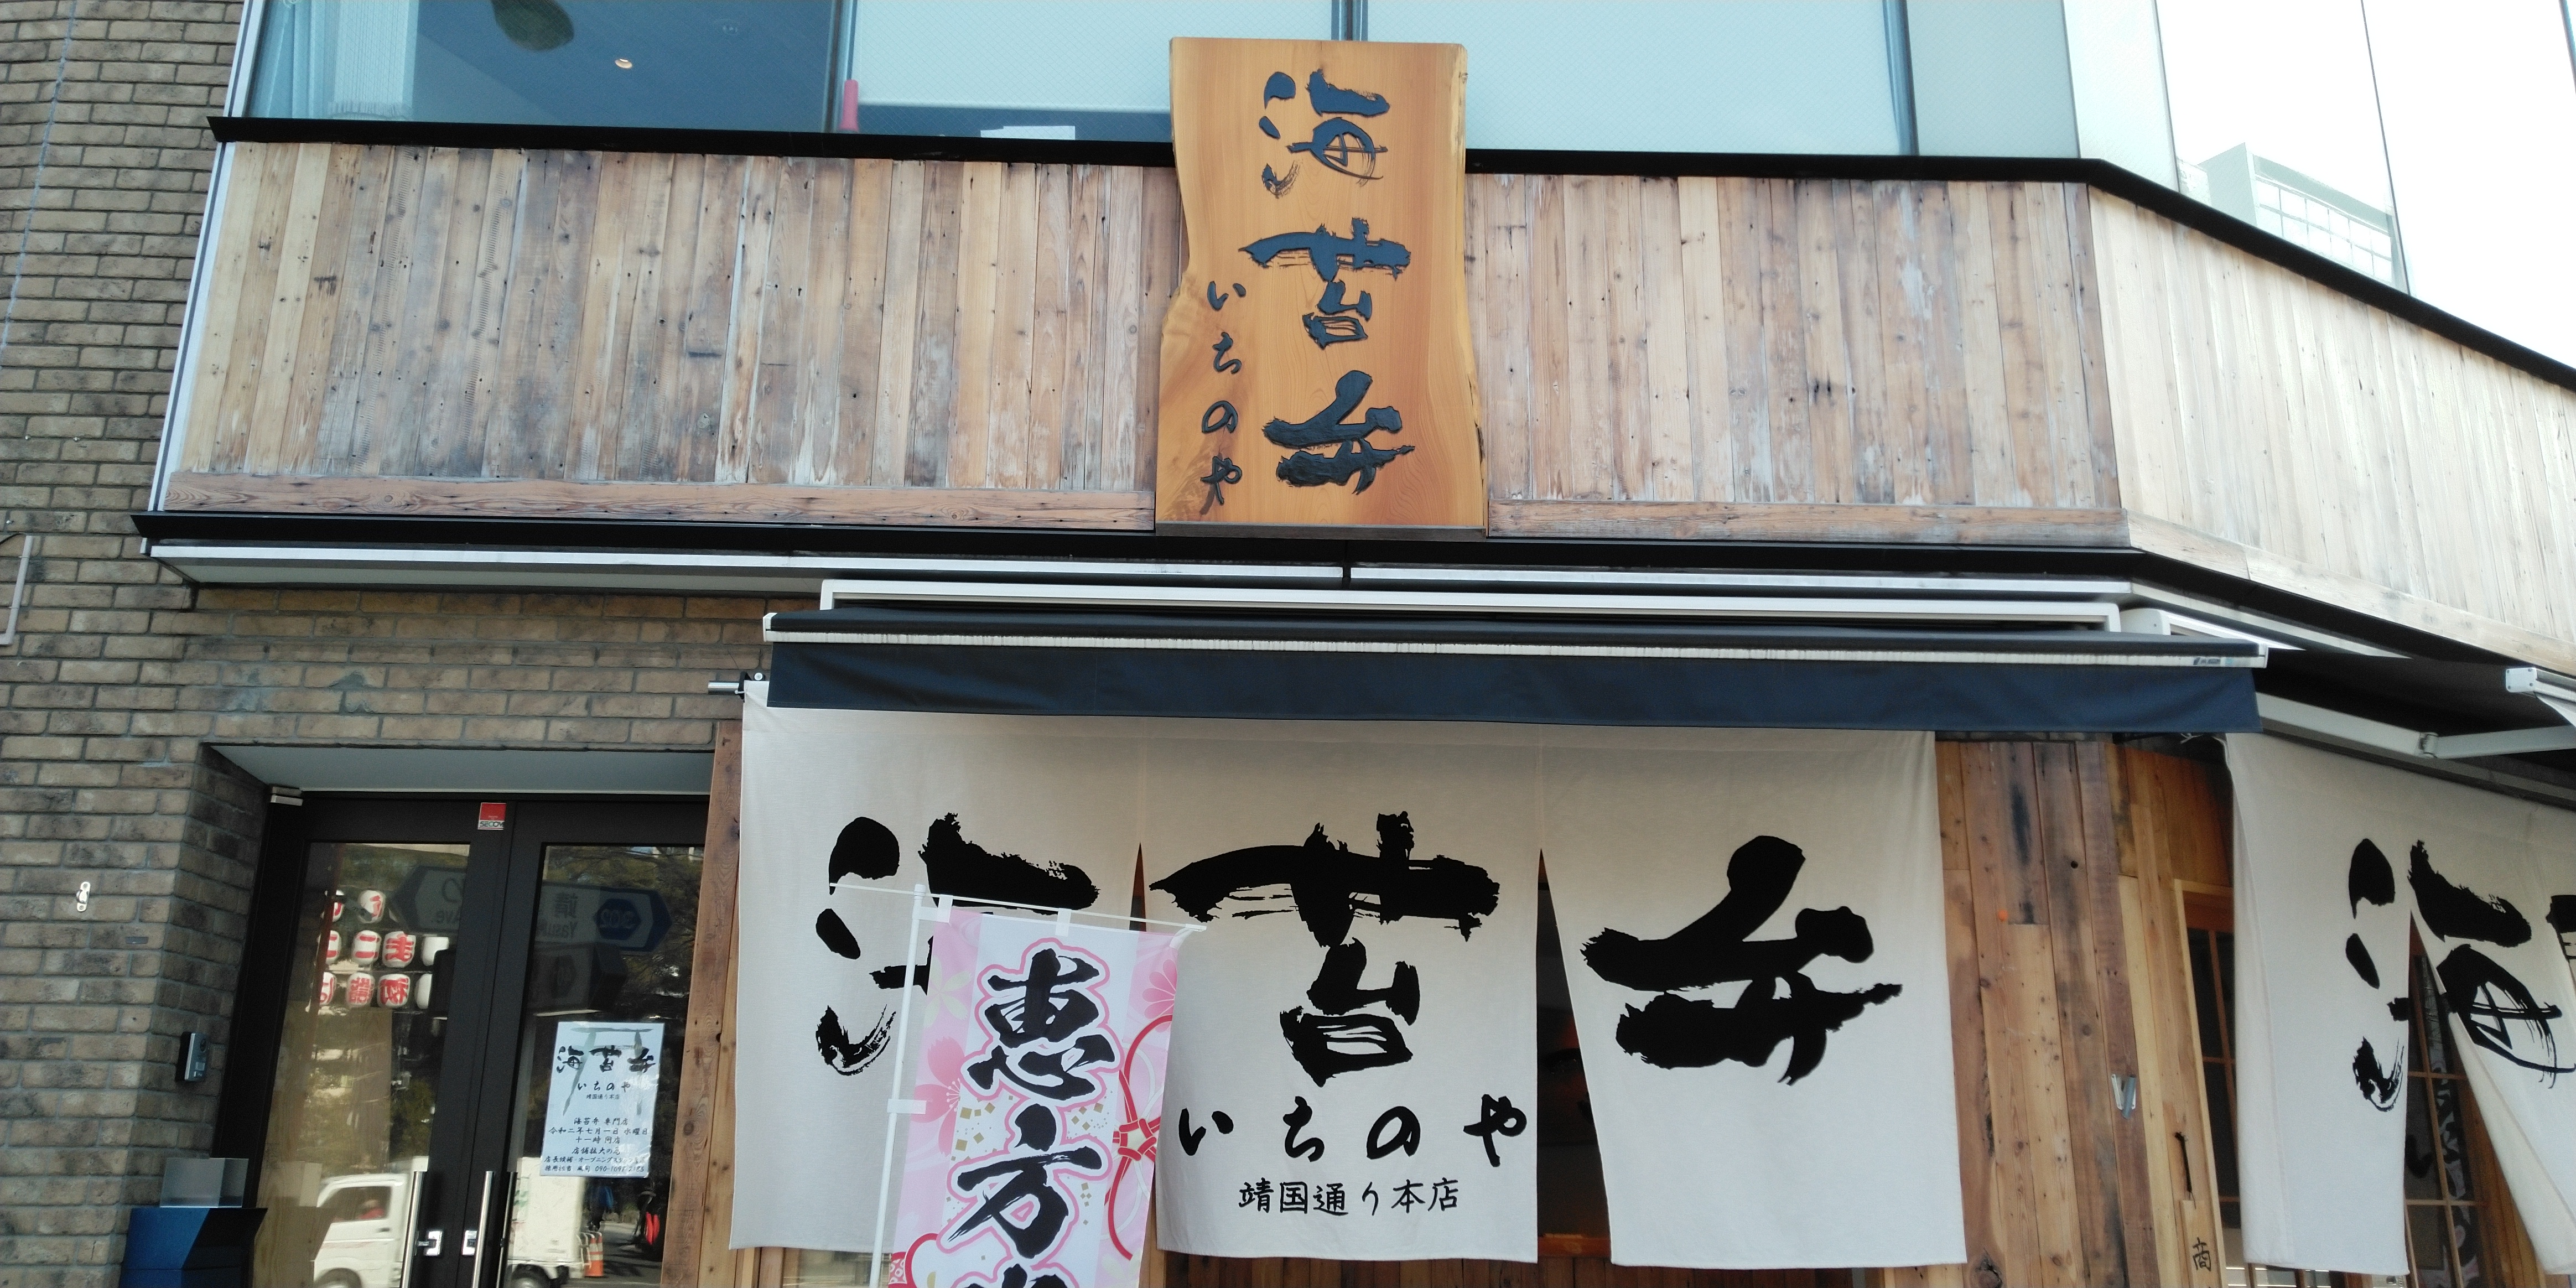 海苔弁
いちのや
海苔弁
いちのや
靖国通り本店
恵方
海苔弁
いちのや
靖国通り本店
海苔弁 専門店
令和二年七月一日 水曜日
十一時 開店
海
商
SECOM